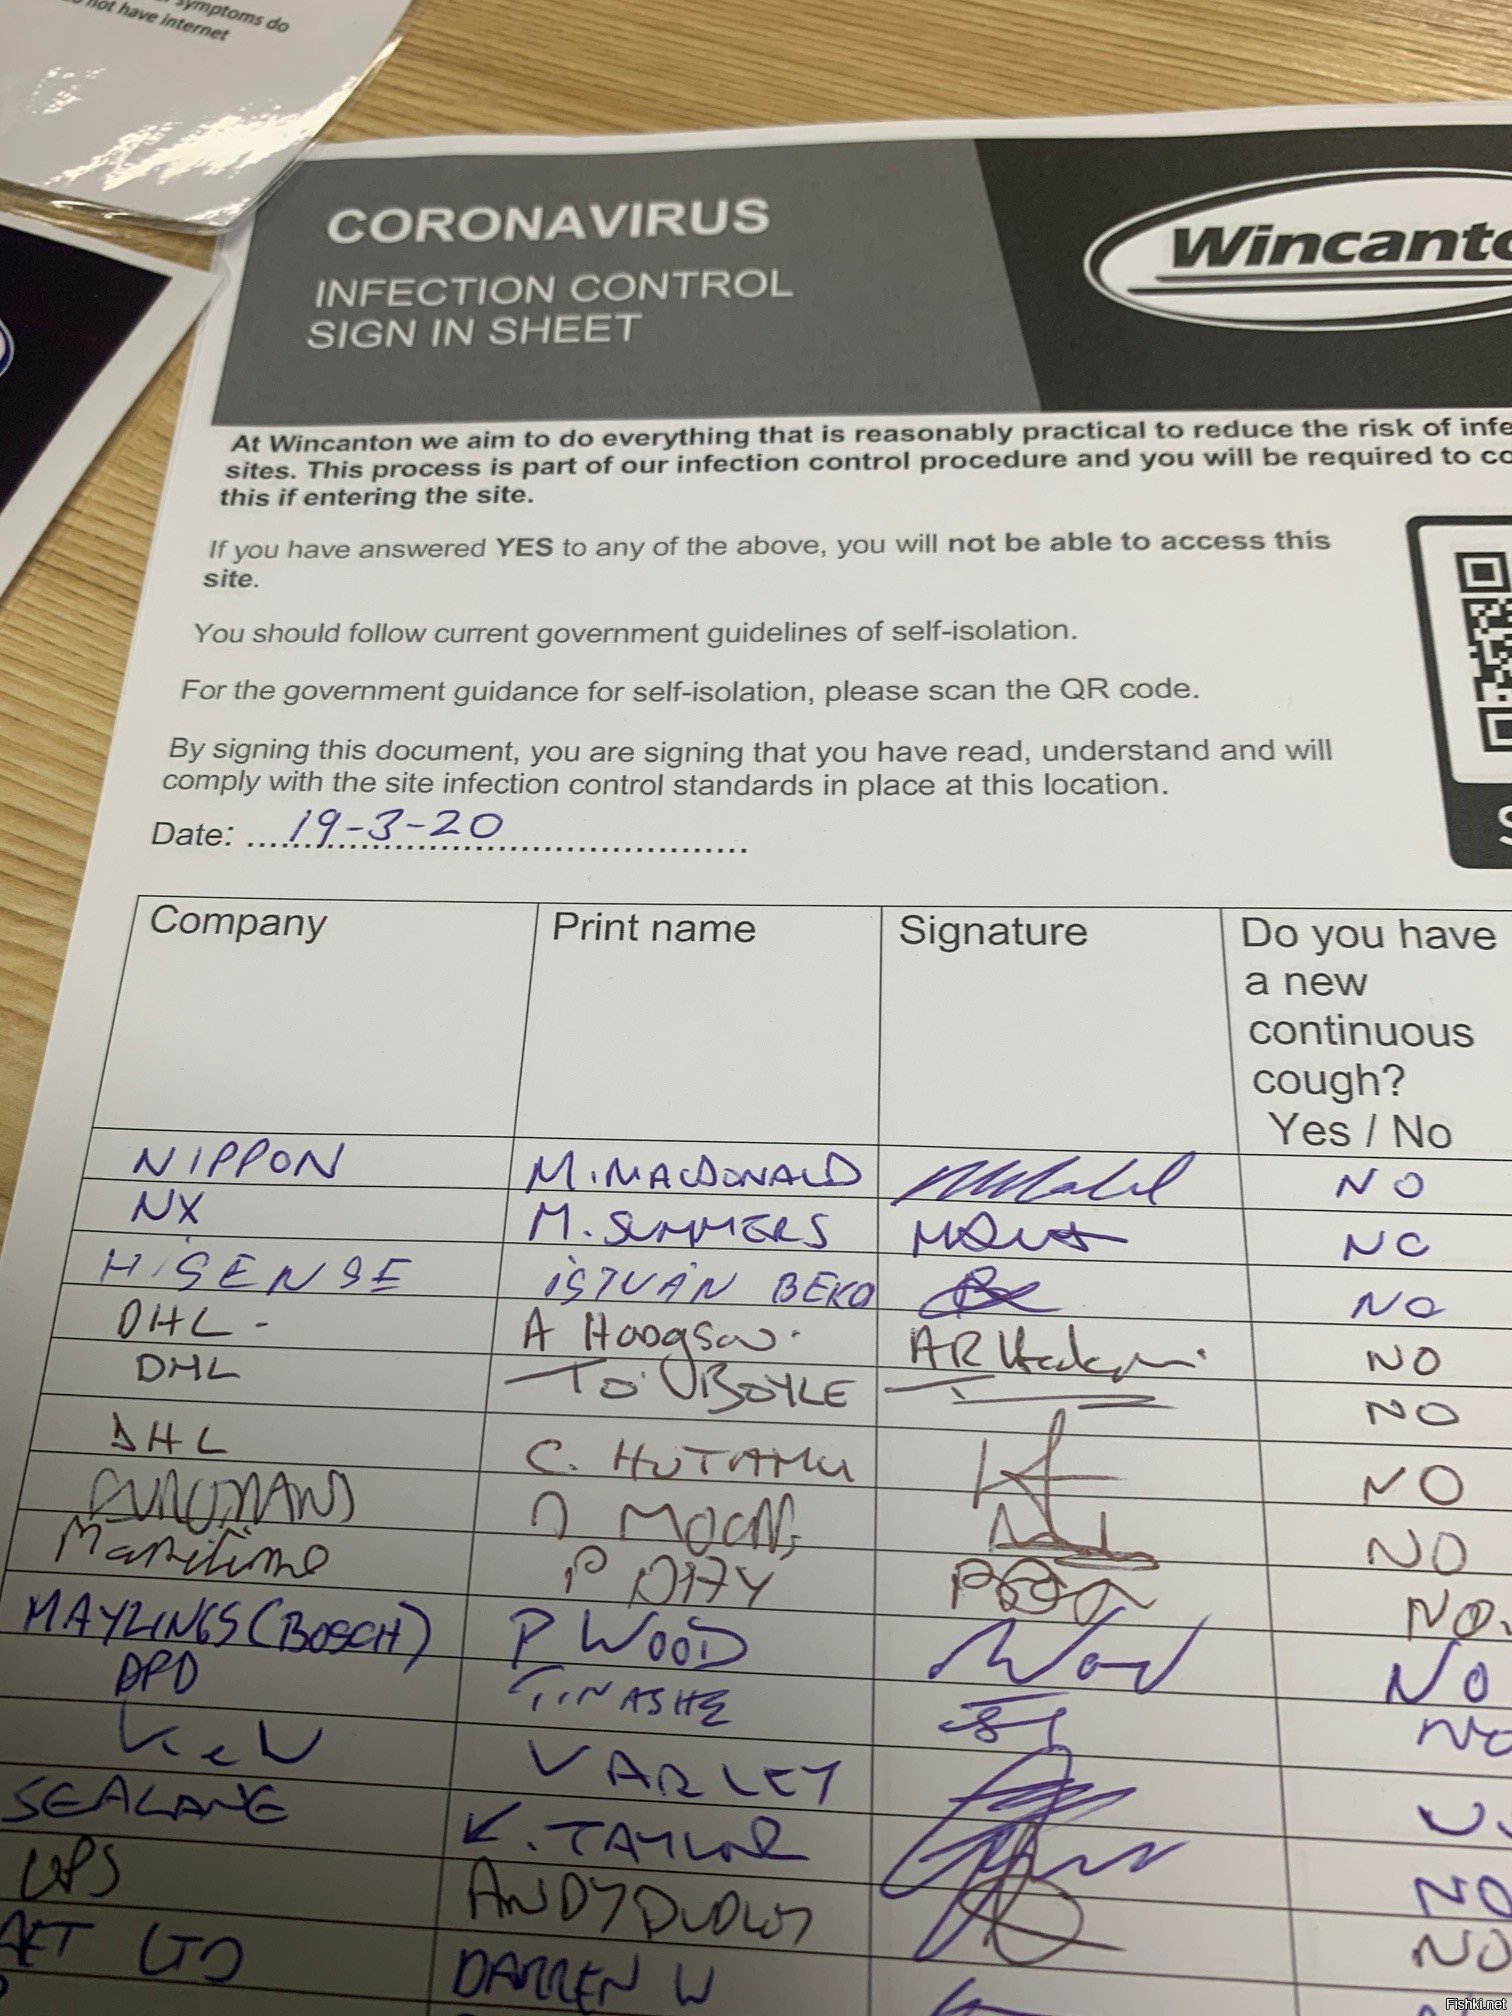 symptoms do
not have internet
CORONAVIRUS
INFECTION CONTROL
SIGN IN SHEET
Wincanto
At Wincanton we aim to do everything that is reasonably practical to reduce the risk of infe
sites. This process is part of our infection control procedure and you will be required to co
this if entering the site.
If you have answered YES to any of the above, you will not be able to access this
site.
You should follow current government guidelines of self-isolation.
For the government guidance for self-isolation, please scan the QR code.
By signing this document, you are signing that you have read, understand and will
comply with the site infection control standards in place at this location.
S
Date: 19-3-20
Company Print name Signature Do you have
a new
continuous
cough?
Yes / No
NIPPON M. MACDONALD NO
NX M. SUMMERS NO
HISENSE ISTVÁN BEKO NO
DHL - A Hodgson NO
DHL BOYLE NO
DHL C. NO
NO
Maritime P NO.
MAYLINGS (BOSCH) P WOOD NO
DPD TINASHE NO
K&N VARLEY
SEALANE K. TAYLOR NO
UPS ANDY DUDLEY NO
LTD DARREN W
Fishki.net